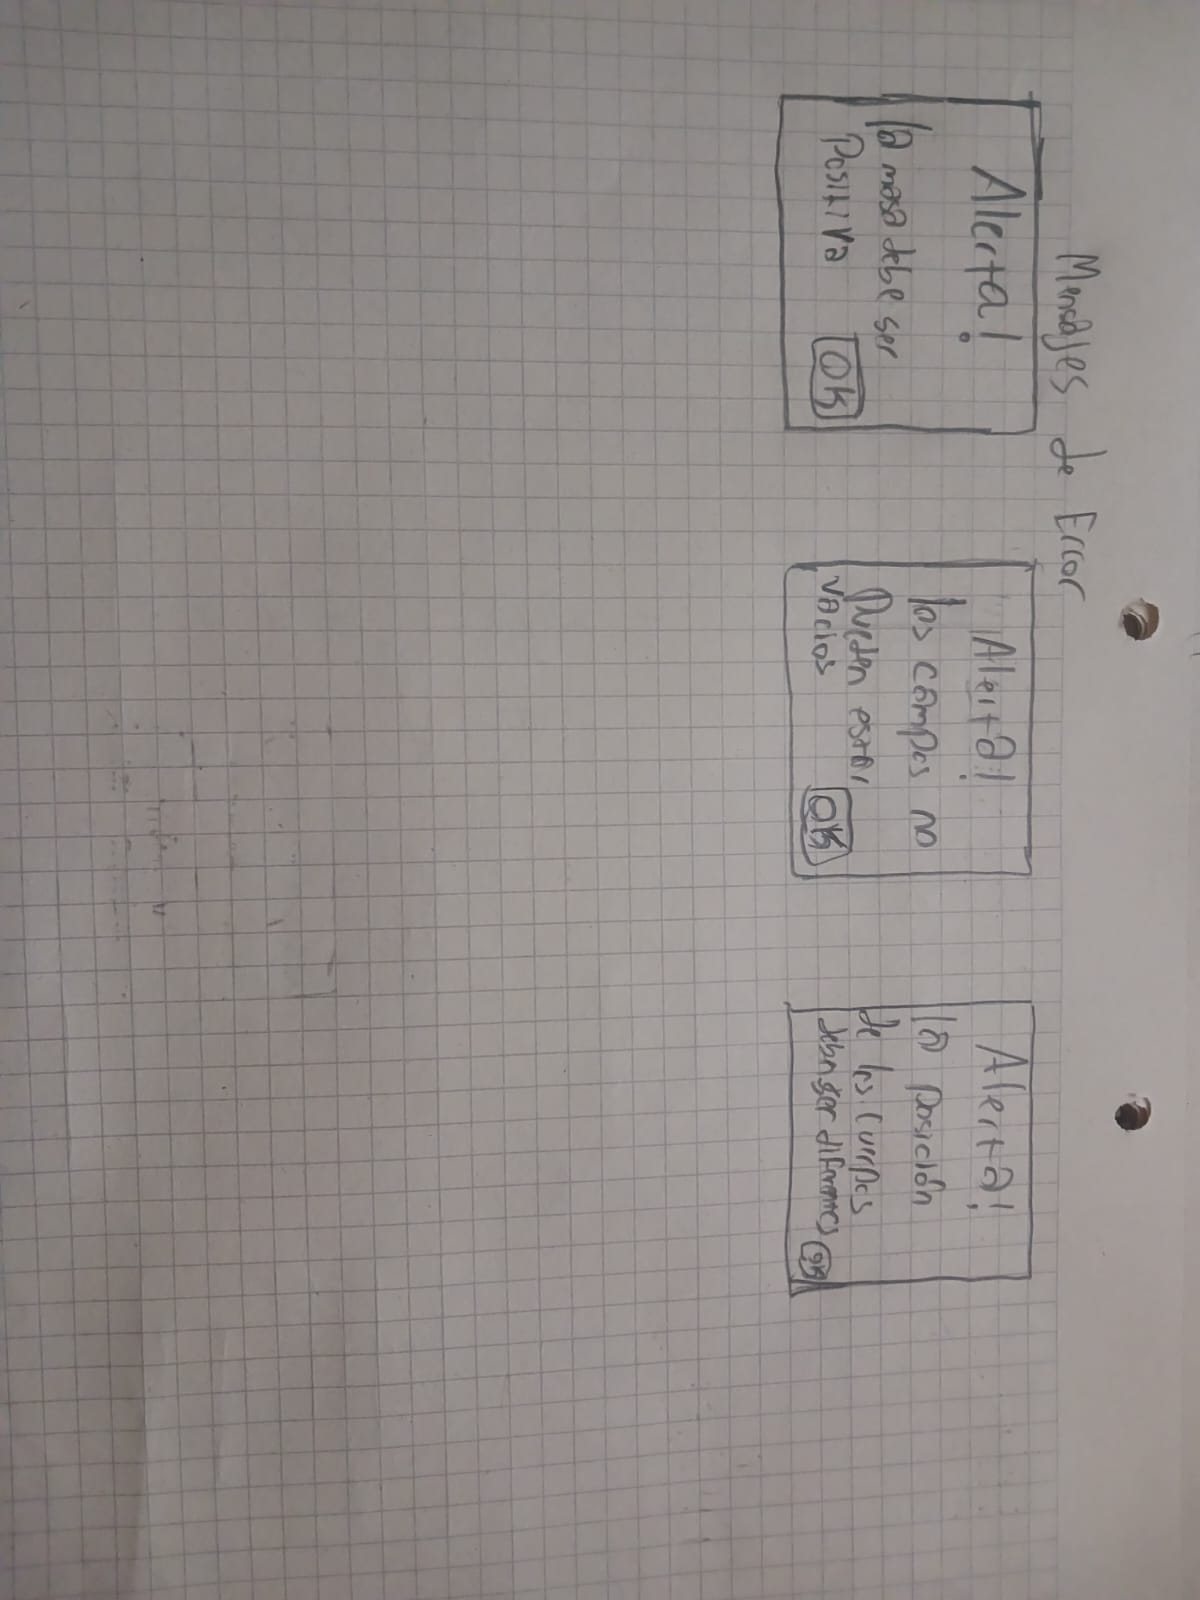 Mensajes de Error
Alerta!
la masa debe ser
Positiva
OK
Alerta!
los campos no
Pueden estar
vacios
OK
Alerta!
la posición
de los cuerpos
deben ser diferentes
OK